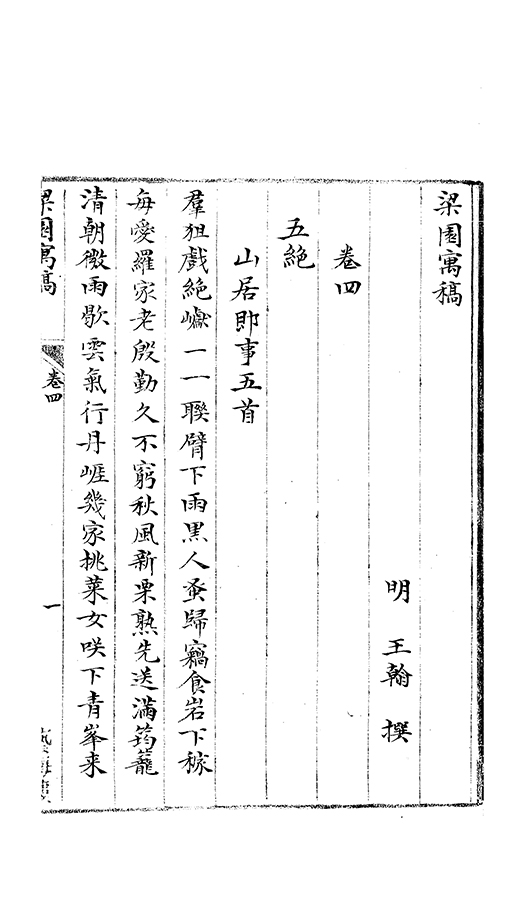 梁園寓稿
明 王翰 撰
卷四
五絶
山居即事五首
羣狙戲絶巘一一聯臂下雨黒人蚤歸竊食岩下稼
每愛羅家老殷勤久不窮秋風新栗熟先送滿筠籠
清朝微雨歇雲氣行丹崕幾家挑菜女咲下青峯来
梁園寓稿
卷四
一